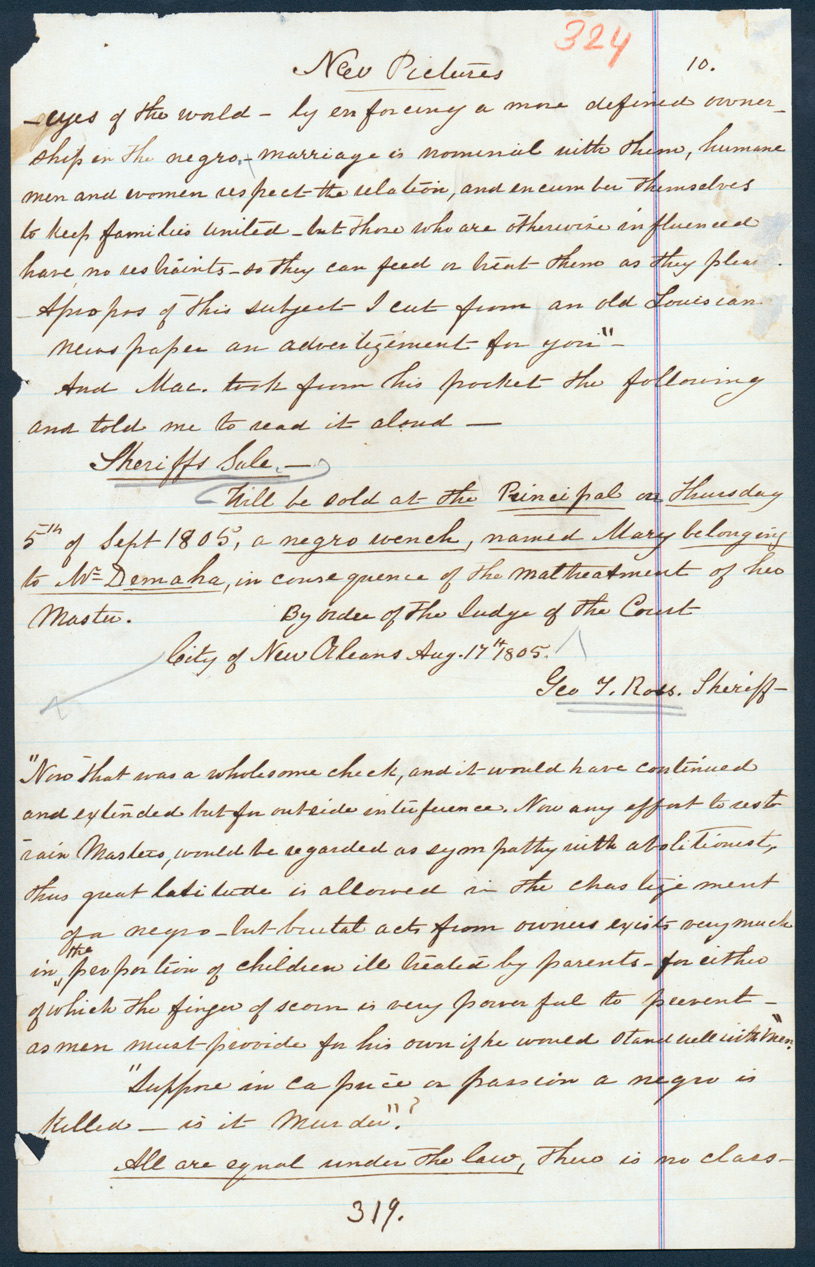 324
New Pictures 10.
-eyes of the world - by enforcing a more defined owner-
ship in the negro, - marriage is nominal with them, humane
men and women respect the relation, and encumber themselves
to keep families united - but those who are otherwise influenced
have no restraints - so they can feed or treat them as they pleas
Apropos of this subject I cut from an old Louisian
newspaper an advertizement for you" -
And Mac. took from his pocket the following
and told me to read it aloud -
Sheriffs Sale. -
Will be sold at the Principal on Thursday
5th of Sept 1805, a negro wench, named Mary belonging
to Mr Demaha, in consequence of the maltreatment of her
Master. By order of the Judge of the Court
City of New Orleans Aug. 17th 1805.
Geo T. Ross. Sheriff -
"Now that was a wholesome check, and it would have continued
and extended but for outside interference. Now any effort to rest
rain Masters, would be regarded as sympathy with abolitionist,
thus great latitude is allowed in the chastizement
of a negro - but brutal acts from owners exists very much
in the proportion of children ill treated by parents - for either
of which the finger of scorn is very powerful to prevent -
as men must provide for his own if he would stand well with men."
"Suppose in caprice or passion a negro is
killed - is it Murder"?
All are equal under the law, there is no class -
319.